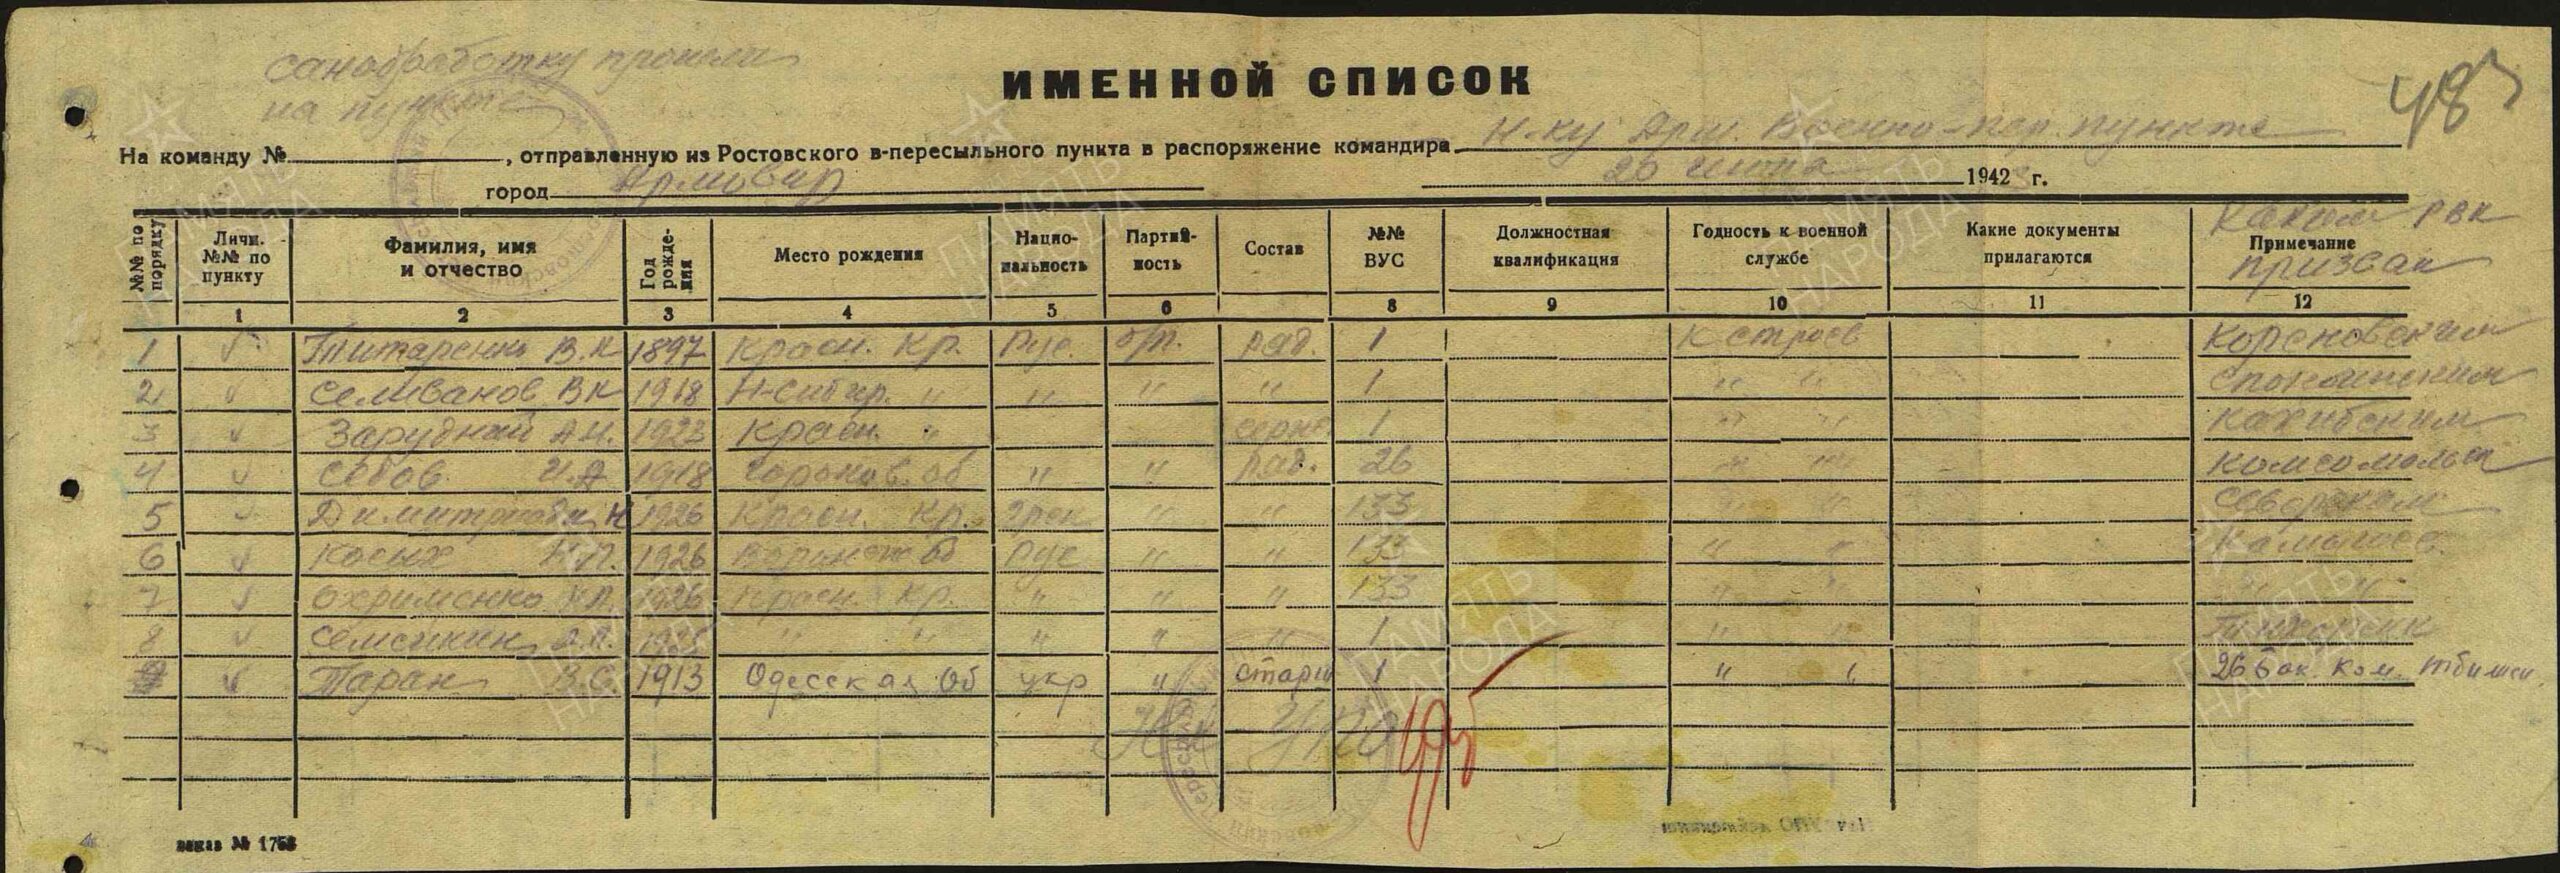 санобработку прошли
на пункте
ИМЕННОЙ СПИСОК
483
На команду № , отправленную из Ростовского в-пересыльного пункта в распоряжение командира Н-ку Арм. Военно-пер. пункта
город Армовир 26 1942 г.
Каким РВК
призван
№№ по порядку Личн. №№ по пункту Фамилия, имя и отчество Год рождения Место рождения Нацио-нальность Партий-ность Состав №№ ВУС Должностная квалификация Годность к военной службе Какие документы прилагаются Примечание
1 2 3 4 5 6 8 9 10 11 12
1 v Титаренко В.К 1897 Красн. Кр. Рус. б/п. ряд. 1 К строев Кореновским
2 v Селиванов В К 1918 Н-Сибир. " " " " 1 " " Спокоинским
3 v Зарудний А.И. 1923 Красн. " 1 " " Кахибским
4 v И.А 1918 Горьков. об " " ряд. 26 " " Комсомольск
5 v Н 1926 Красн. Кр. Грек " " 133 " " Северским
6 v Косых 1926 Воронеж об Рус " " 133 " "
7 v Охрименко И.П. 1926 Красн. Кр. " " " 133 " " " "
8 v " " " " " 1 " "
9 v Таран В.С. 1913 Одесская Об укр " старш 1 " " 26 бак. Ком. Тбилиси.
заказ № 1753
ПАМЯТЬ НАРОДА
ПАМЯТЬ НАРОДА
ПАМЯТЬ НАРОДА
ПАМЯТЬ НАРОДА
ПАМЯТЬ НАРОДА
ПАМЯТЬ НАРОДА